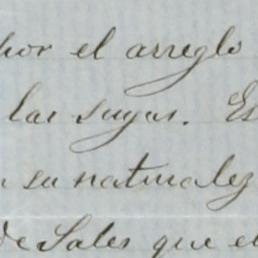 por el arreglo
las suyas. Es
su naturalez
de Sales que el